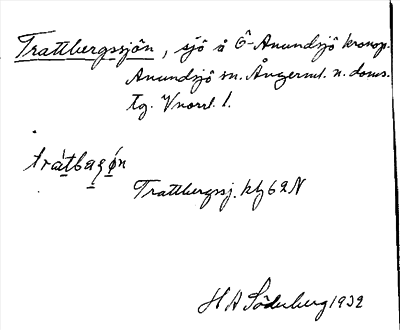 Trattbergssjön, sjö å Ö-Anundsjö kronop.
Anundsjö sn. Ångerml. n. doms.
tg. Vnorrl. l.
Trattbergssj. kbl 62 N
H A Söderberg 1932